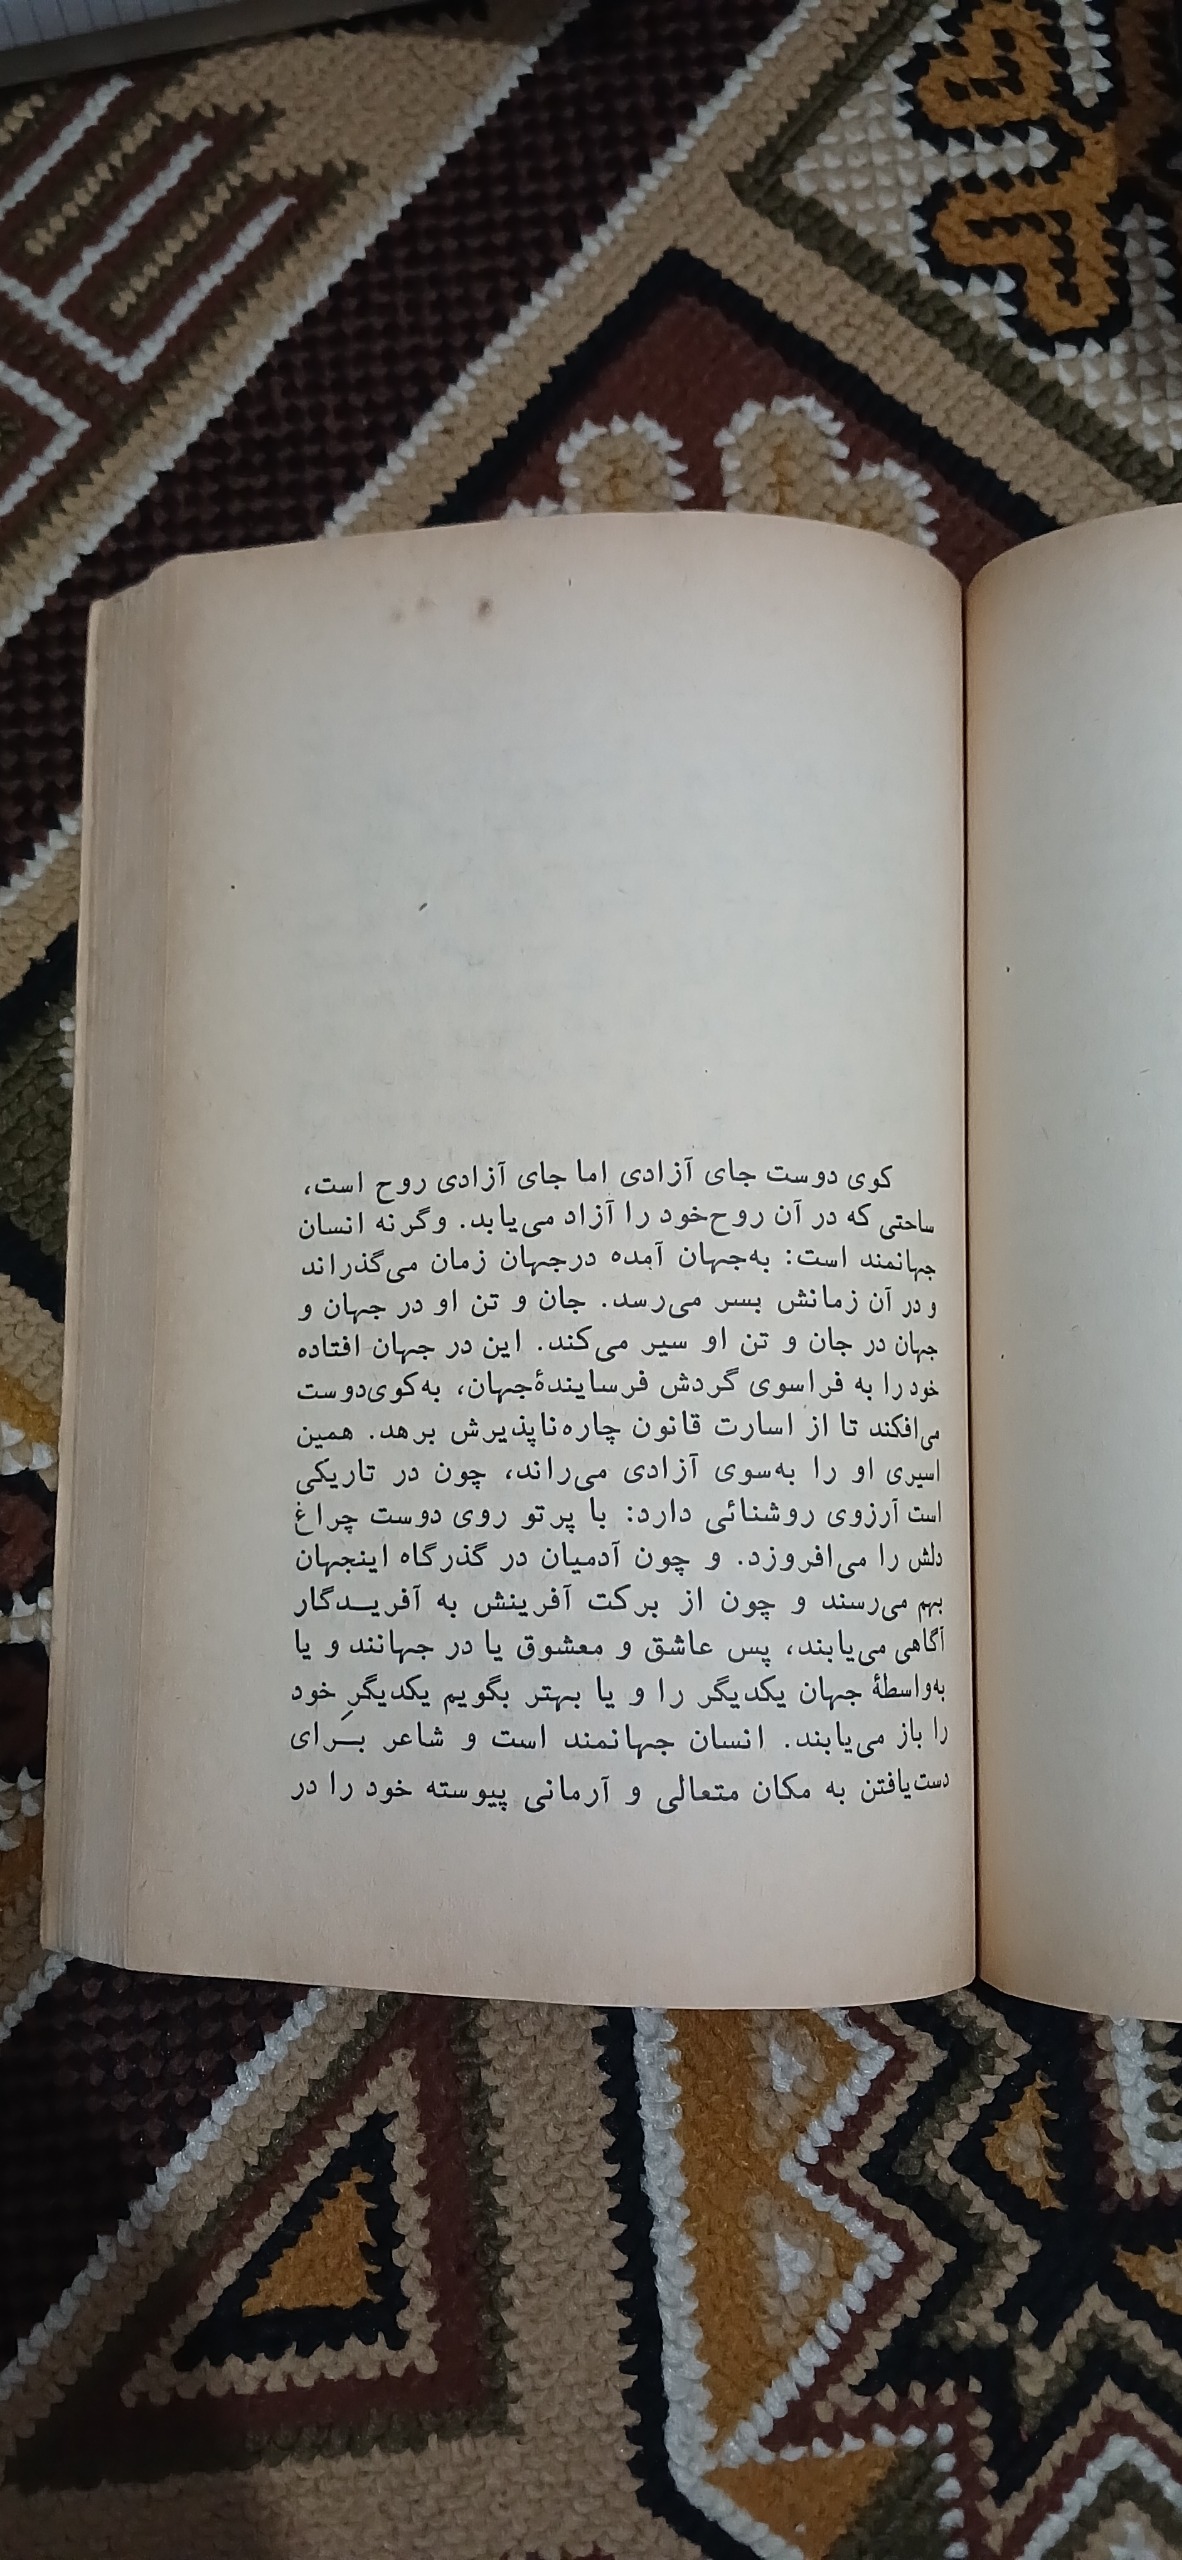 کوی دوست جای آزادی اما جای آزادی روح است،
ساحتی که در آن روح‌خود را آزاد می‌یابد. وگرنه انسان
جهانمند است: به‌جهان آمده درجهان زمان می‌گذراند
و در آن زمانش بسر می‌رسد. جان و تن او در جهان و
جهان در جان و تن او سیر می‌کند. این در جهان افتاده
خود را به فراسوی گردش فرسایندهٔ‌جهان، به‌کوی‌دوست
می‌افکند تا از اسارت قانون چاره‌ناپذیرش برهد. همین
اسیری او را به‌سوی آزادی می‌راند، چون در تاریکی
است آرزوی روشنائی دارد: با پرتو روی دوست چراغ
دلش را می‌افروزد. و چون آدمیان در گذرگاه اینجهان
بهم می‌رسند و چون از برکت آفرینش به آفریــدگار
آگاهی می‌یابند، پس عاشق و معشوق یا در جهانند و یا
به‌واسطهٔ جهان یکدیگر را و یا بهتر بگویم یکدیگرِ خود
را باز می‌یابند. انسان جهانمند است و شاعر بــرای
دست‌یافتن به مکان متعالی و آرمانی پیوسته خود را در